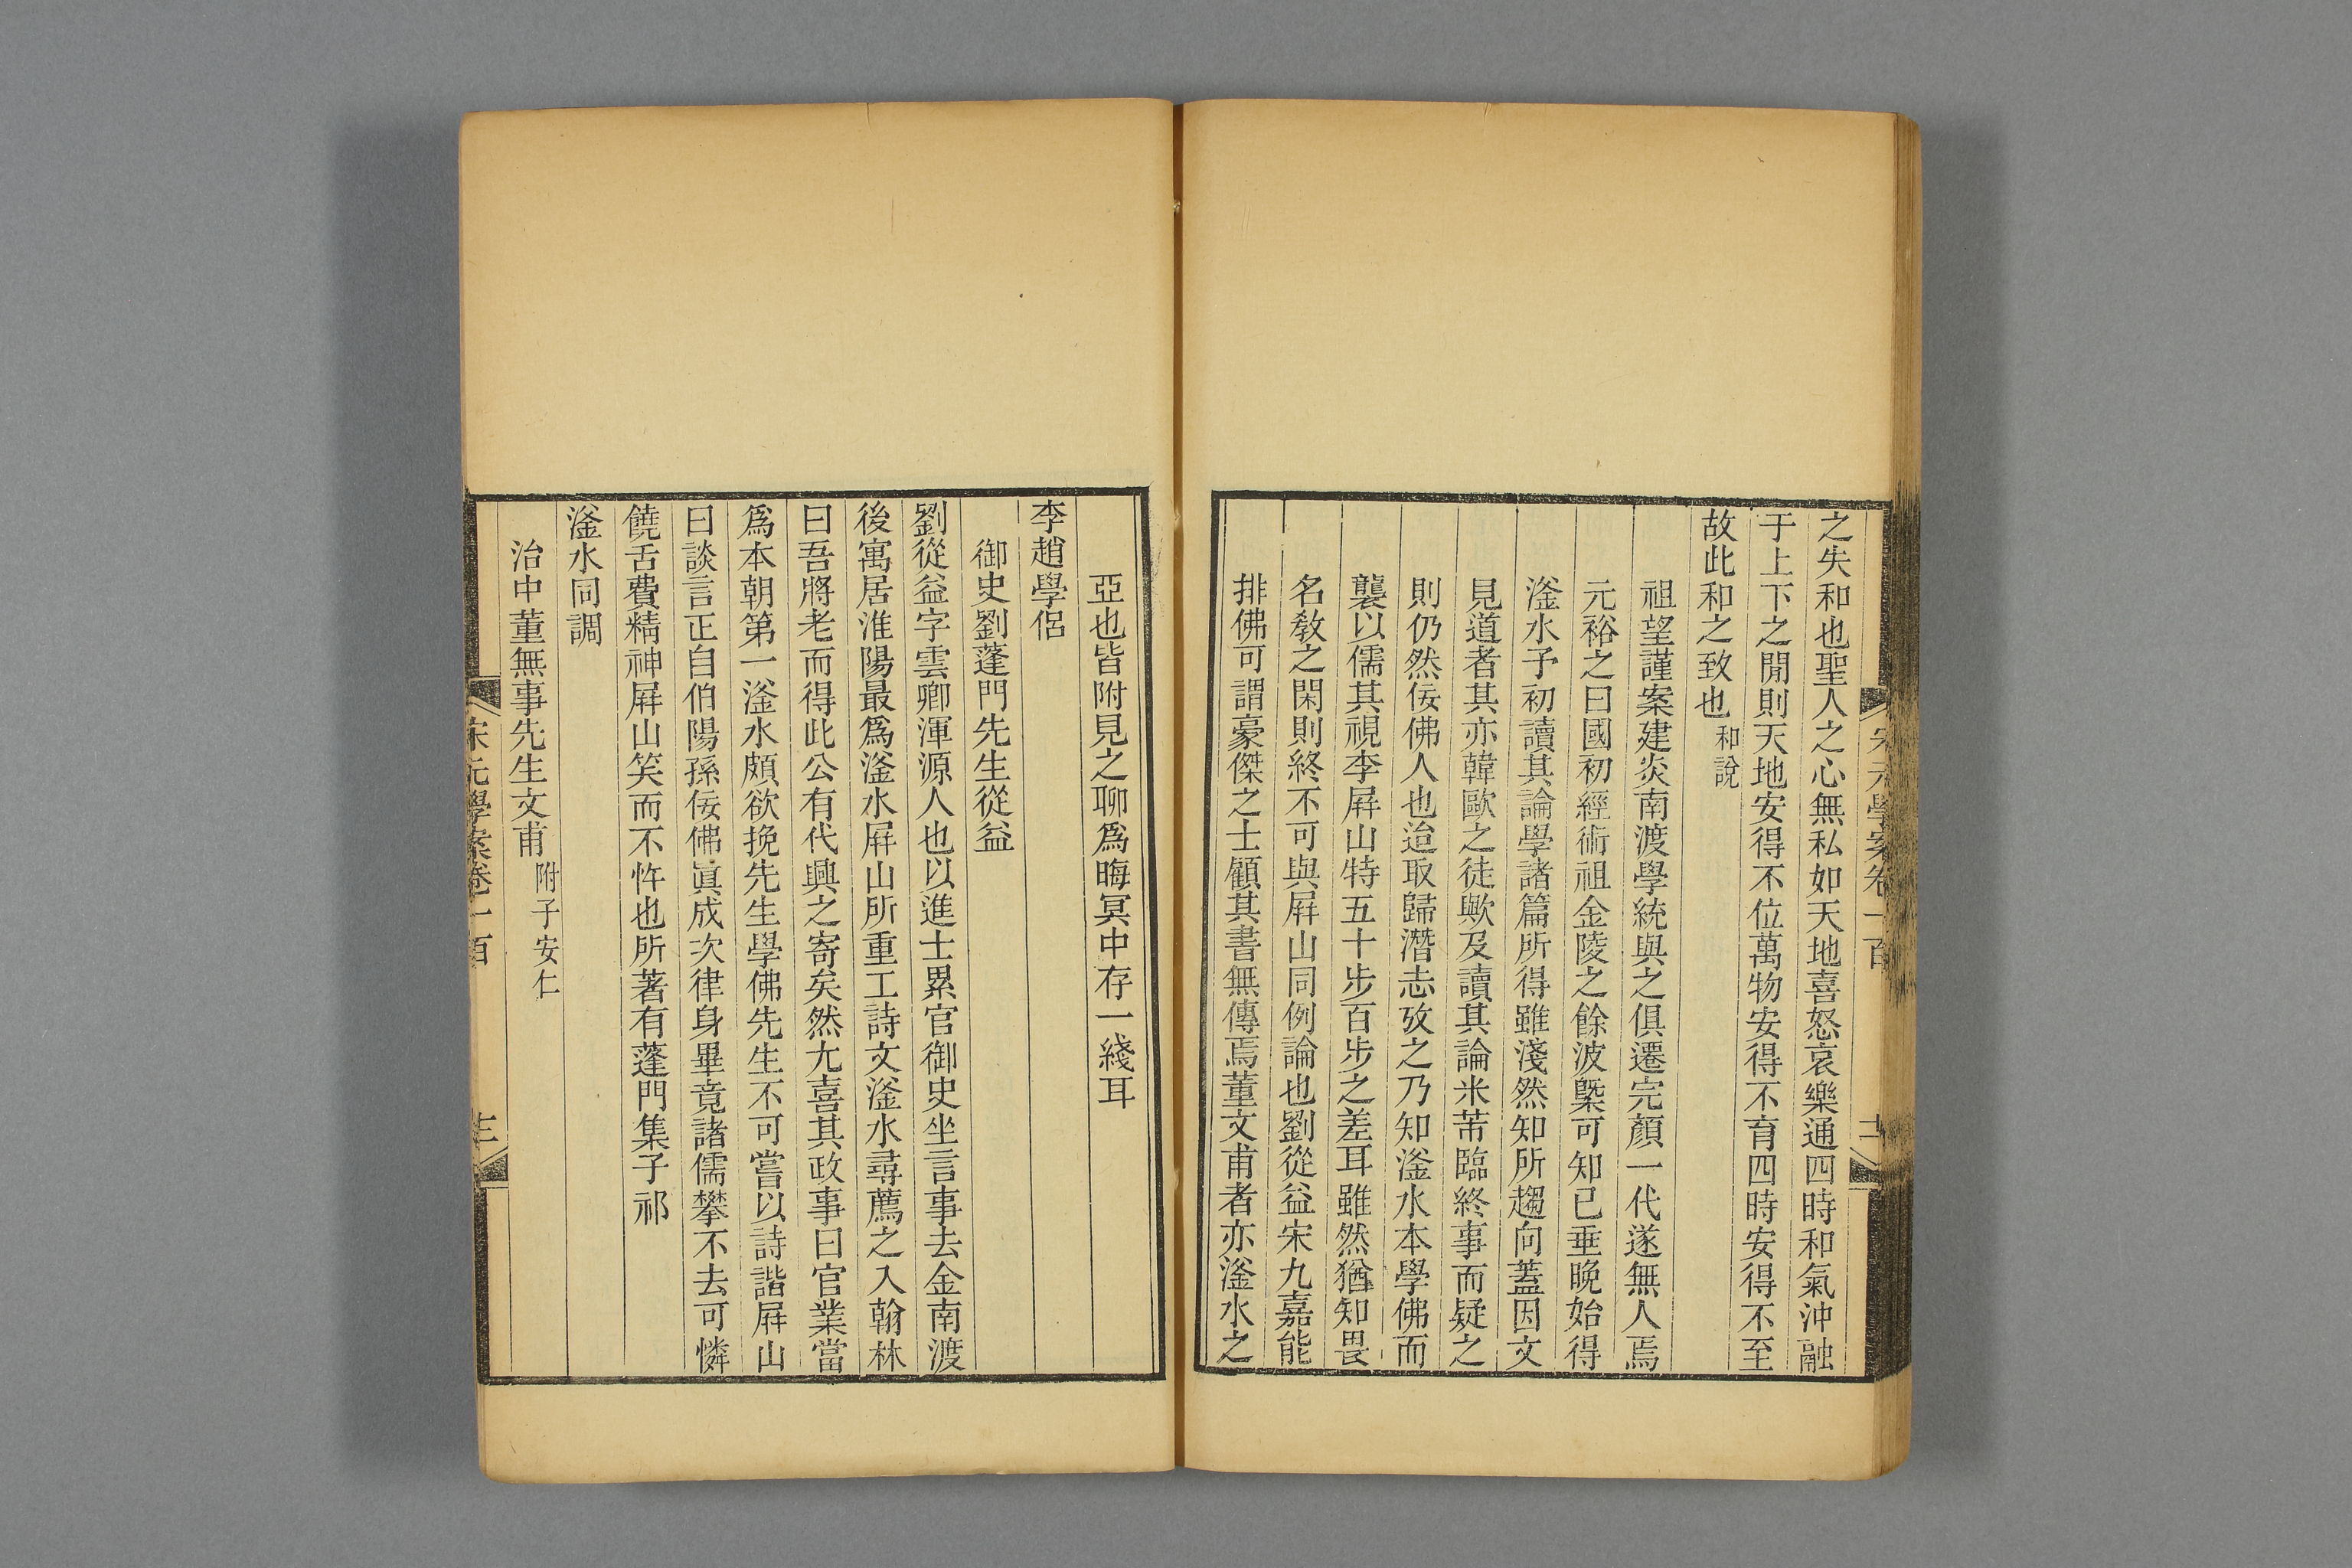 之失和也聖人之心無私如天地喜怒哀樂通四時和氣沖融
于上下之閒則天地安得不位萬物安得不育四時安得不至
故此和之致也和說
祖望謹案建炎南渡學統與之俱遷完顏一代遂無人焉
元裕之曰國初經術祖金陵之餘波槩可知已垂晚始得
滏水予初讀其論學諸篇所得雖淺然知所趨向蓋因文
見道者其亦韓歐之徒歟及讀其論米芾臨終事而疑之
則仍然佞佛人也迨取歸潛志攷之乃知滏水本學佛而
襲以儒其視李屛山特五十步百步之差耳雖然猶知畏
名敎之閑則終不可與屛山同例論也劉從益宋九嘉能
排佛可謂豪傑之士顧其書無傳焉董文甫者亦滏水之
宋元學案卷一百
亞也皆附見之聊爲晦冥中存一綫耳
李趙學侶
御史劉蓬門先生從益
劉從益字雲卿渾源人也以進士累官御史坐言事去金南渡
後寓居淮陽最爲滏水屛山所重工詩文滏水尋薦之入翰林
曰吾將老而得此公有代興之寄矣然尤喜其政事曰官業當
爲本朝第一滏水頗欲挽先生學佛先生不可嘗以詩諧屛山
曰談言正自伯陽孫佞佛眞成次律身畢竟諸儒攀不去可憐
饒舌費精神屛山笑而不忤也所著有蓬門集子祁
滏水同調
治中董無事先生文甫附子安仁
宋元學案卷一百